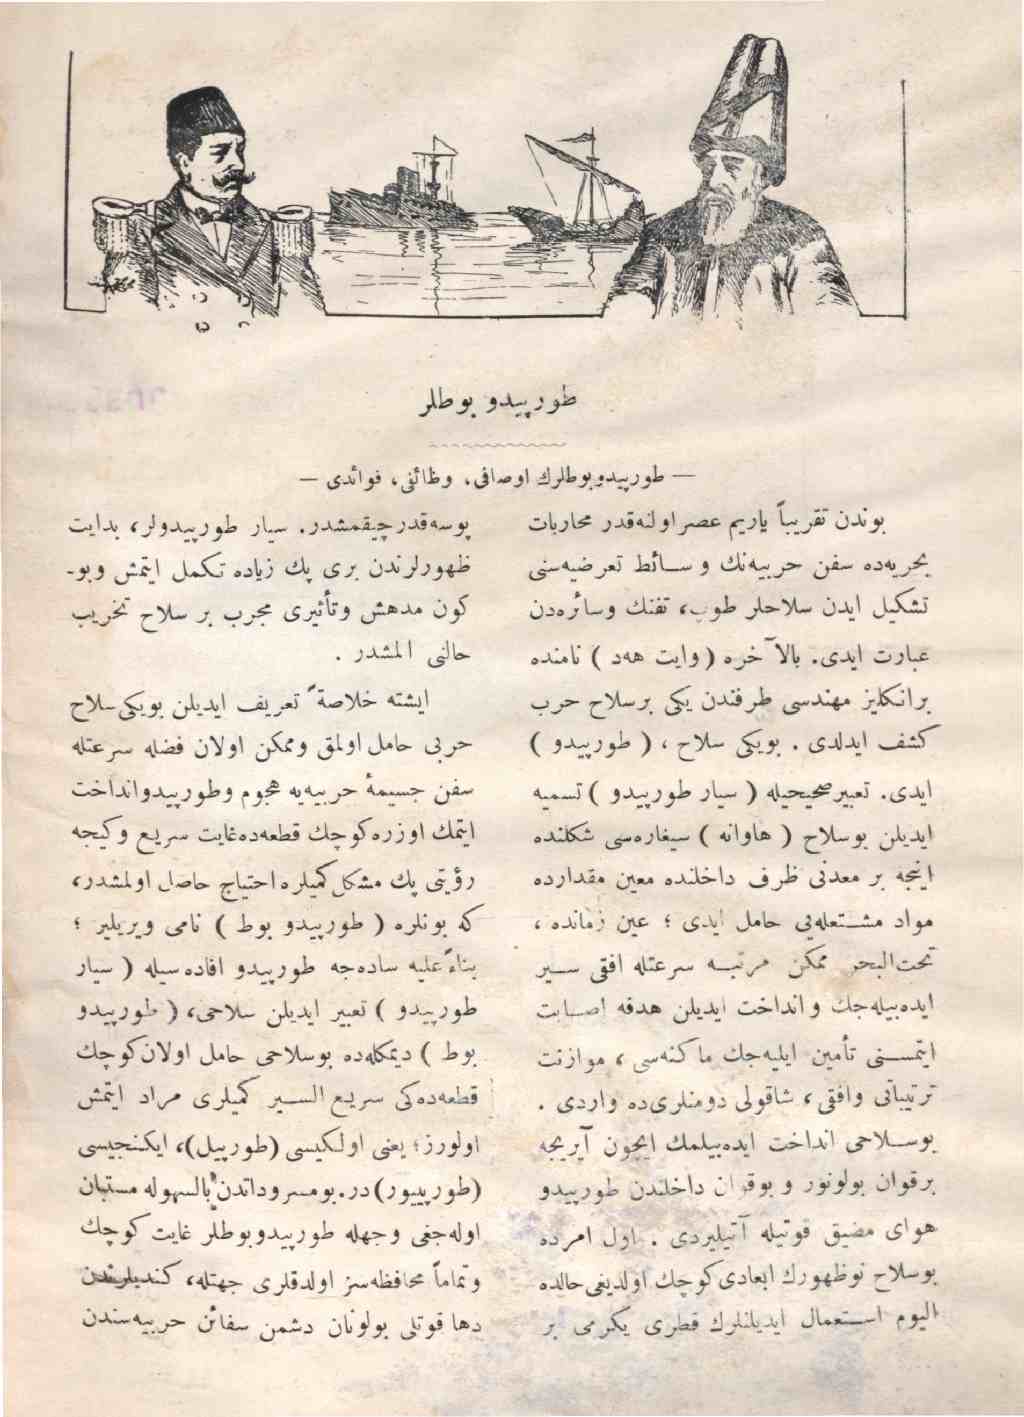 طورپیدو بوطلر
— طورپیدوبوطلرك اوصافی، وظائفی، فوائدی —
بوندن تقریباً یاریم عصر اولنه‌قدر محاربات
بحریه‌ده سفن حربیه‌نك وسائط تعرضیه‌سنی
تشكیل ایدن سلاحلر طوب، تفنك وسائره‌دن
عبارت ایدی. بالآخره (وایت هه‌د) نامنده
برانكلیز مهندسی طرفندن یكی برسلاح حرب
كشف ایدلدی. بویكی سلاح، (طورپیدو)
ایدی. تعبیرصحیحیله (سیار طورپیدو) تسمیه
ایدیلن بوسلاح (هاوانه) سیغاره‌سی شكلنده
اینجه بر معدنی ظرف داخلنده معین مقدارده
مواد مشتعله‌یی حامل ایدی؛ عین زمانده،
تحت‌البحر ممكن مرتبه سرعتله افقی سیر
ایده‌بیله‌جك وانداخت ایدیلن هدفه اصابت
ایتمسنی تأمین ایلیه‌جك ماكنه‌سی، موازنت
ترتیباتی وافقی، شاقولی دومنلری‌ده واردی.
بوسلاحی انداخت ایده‌بیلمك ایچون آیریجه
برقوان بولونور و بوقوان داخلندن طورپیدو
هوای مضیق قوتیله آتیلیردی. اول امرده
بوسلاح نوظهورك ابعادی كوچك اولدیغی حالده
الیوم استعمال ایدیلنلرك قطری یكرمی بر
پوسه‌قدرچیقمشدر. سیار طورپیدولر، بدایت
ظهورلرندن بری پك زیاده تكمل ایتمش وبو-
كون مدهش وتأثیری مجرب بر سلاح تخریب
حالنی المشدر.
ایشته خلاصةً تعریف ایدیلن بویكی سلاح
حربی حامل اولمق وممكن اولان فضله سرعتله
سفن جسیمهٔ حربیه‌یه هجوم وطورپیدوانداخت
ایتمك اوزره كوچك قطعه‌ده‌غایت سریع وكیجه
رؤیتی پك مشكل كمیلره احتیاج حاصل اولمشدر،
كه بونلره (طورپیدو بوط) نامی ویریلیر؛
بناءً علیه ساده‌جه طورپیدو افاده‌سیله (سیار
طورپیدو) تعبیر ایدیلن سلاحی، (طورپیدو
بوط) دیمكله‌ده بوسلاحی حامل اولان كوچك
قطعه‌ده‌كی سریع السیر كمیلری مراد ایتمش
اولورز؛ یعنی اولكیسی (طورپیل)، ایكنجیسی
(طورپییور)در. بومسروداتدن بالسهوله مستبان
اوله‌جغی وجهله طورپیدوبوطلر غایت كوچك
وتماماً محافظه‌سز اولدقلری جهتله، كندیلرندن
دها قوتلی بولونان دشمن سفائن حربیه‌سندن